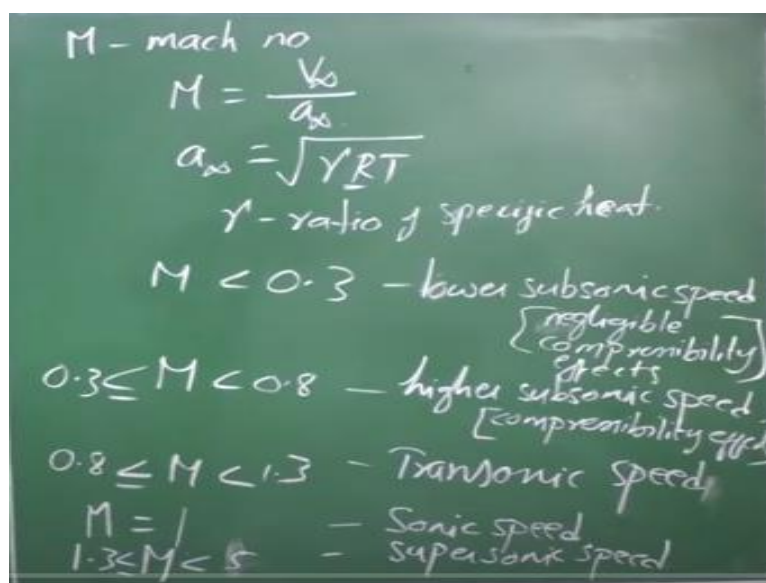 M - mach no
M = V∞ / a∞
a∞ = √γRT
γ - ratio of specific heat.
M < 0.3 - lower subsonic speed
[negligible
compressibility
effects]
0.3 ≤ M < 0.8 - higher subsonic speed
[compressibility effec
0.8 ≤ M < 1.3 - Transonic speed
M = 1 - Sonic speed
1.3 ≤ M < 5 - supersonic speed